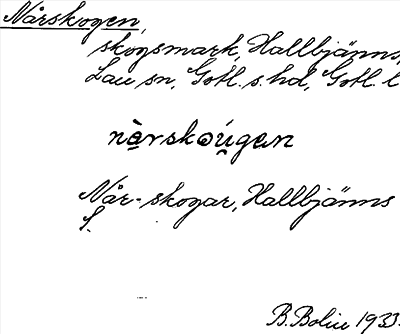 Nårskogen,
skogsmark, Hallbjänns,
Lau sn, Gotl. s. hd, Gotl. l
Når-skogar, Hallbjänns
S.
B. Bolin 1933.